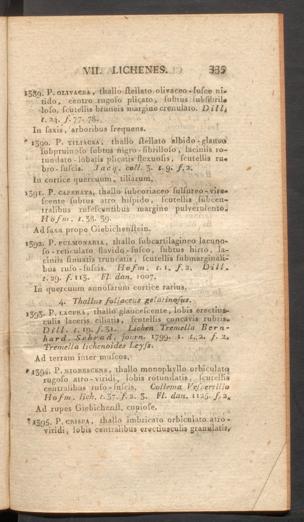 VII. LICHENES. 335
1389. P. OLIVACEA, thallo stellato olivaceo-fusco ni-
tido, centro rugoso plicato, subtus subfibril-
loso, scutellis bruneis margine crenulato. Dill.
t. 24. f. 77. 78.
In saxis, arboribus frequens.
*1390. P. TILIACEA, thallo stellato albido-glauco
subpruinoso subtus nigro-fibrilloso, laciniis ro-
tundato-lobatis plicatis flexuosis, scutellis ru-
bro-fuscis. Jacq. coll. 3. t. 9. f. 2.
In cortice quercuum, tiliarum.
1391. P. CAPERATA, thallo subcoriaceo sulfureo-vire-
scente subtus atro hispido, scutellis subcen-
tralibus rufescentibus margine pulverulento.
Hofm. t. 38. 39.
Ad saxa prope Giebichenstein.
1392. P. PULMONARIA, thallo subcartilagineo lacuno-
so-reticulato flavido-fusco, subtus hirto, la-
ciniis sinuatis truncatis, scutellis submarginali-
bus rufo-fuscis. Hofm. t. 1. f. 2. Dill.
t. 29. f. 113. Fl. dan. 1007.
In quercuum annosarum cortice rarius.
4. Thallus foliaceus gelatinosus.
1393. P. LACERA, thallo glaucescente, lobis erectius-
culis laceris ciliatis, scutellis concavis rubris.
Dill. t. 19. f. 31. Lichen Tremella Bern-
hard. Schrad. journ. 1799. 1. t. 2. f. 2.
Tremella lichenoides Leyss.
Ad terram inter muscos.
*1394. P. NIGRESCENS, thallo monophyllo orbiculato
rugoso atro-viridi, lobis rotundatis, scutellis
centralibus rufo-fuscis. Collema Vespertilio
Hofm. lich. t. 37. f. 2. 3. Fl. dan. 1125. f. 2.
Ad rupes Giebichenst. copiose.
*1395. P. CRISPA, thallo imbricato orbiculato atro-
viridi, lobis centralibus erectiusculis granulatis,